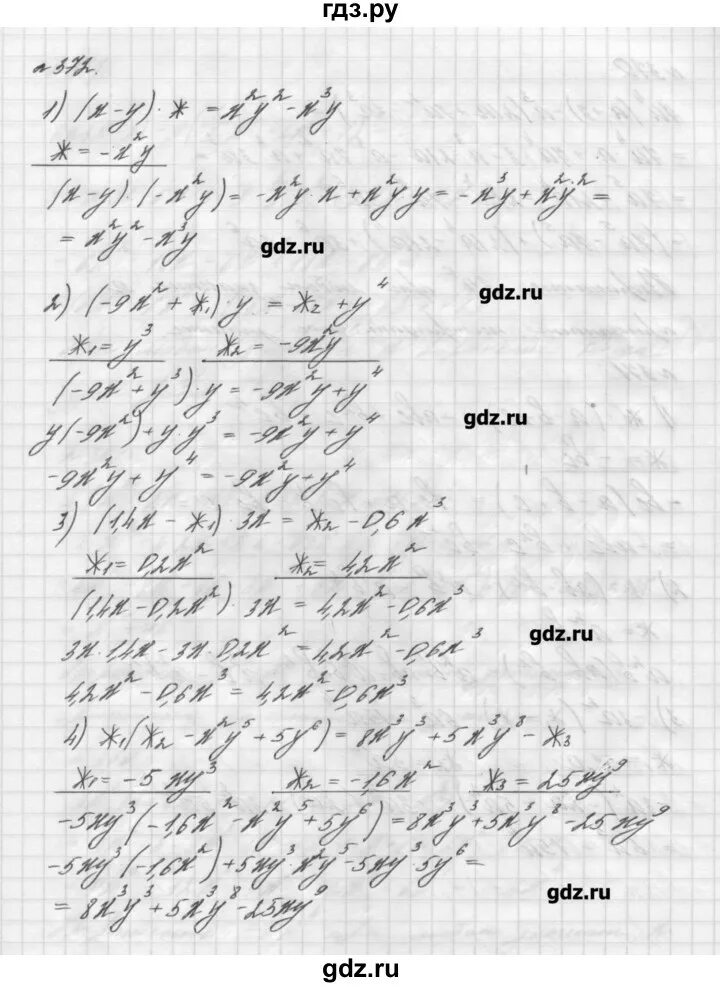 гдз.ру
№ 372.
1) (x-y) · * = x²y² - x³y
* = -x²y
(x-y) · (-x²y) = -x²y · x + x²y y = -x³y + x²y² =
= x²y² - x³y
gdz.ru
gdz.ru
2) (-9x² + *₁) · y = *₂ + y⁴
*₁ = y³ *₂ = -9x²y
(-9x² + y³) · y = -9x²y + y⁴
gdz.ru
y(-9x²) + y · y³ = -9x²y + y⁴
-9x²y + y⁴ = -9x²y + y⁴
3) (1,4x - *₁) · 3x = *₂ - 0,6x³
*₁ = 0,2x² *₂ = 4,2x²
(1,4x - 0,2x²) · 3x = 4,2x² - 0,6x³
gdz.ru
3x · 1,4x - 3x · 0,2x² = 4,2x² - 0,6x³
4,2x² - 0,6x³ = 4,2x² - 0,6x³
4) *₁(*₂ - x²y⁵ + 5y⁶) = 8x³y³ + 5x³y⁸ - *₃
*₁ = -5xy³ *₂ = -1,6x² *₃ = 25xy⁹
-5xy³(-1,6x² - x²y⁵ + 5y⁶) = 8x³y³ + 5x³y⁸ - 25xy⁹
-5xy³(-1,6x²) + 5xy³ · x²y⁵ - 5xy³ · 5y⁶ =
gdz.ru
= 8x³y³ + 5x³y⁸ - 25xy⁹
gdz.ru